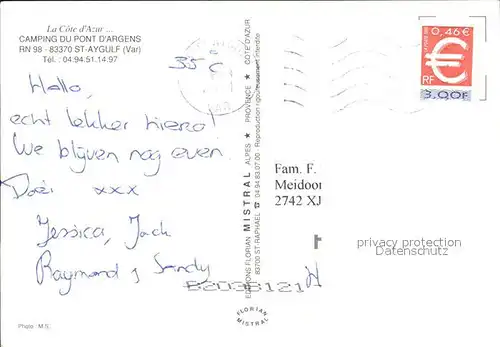 La Côte d'Azur ...
CAMPING DU PONT D'ARGENS
RN 98 - 83370 ST-AYGULF (Var)
Tél. : 04.94.51.14.97
35 C
Hallo,
echt lekker hiero!
We blijven nog even.
Doei xxx
Jessica, Jack
Raymond & Sandy
Photo : M.S.
EDITIONS FLORIAN MISTRAL ALPES ★ PROVENCE ★ COTE D'AZUR
83700 ST-RAPHAEL ☎ 04.94.83.07.00 Reproduction rigoureusement interdite
FLORIAN
MISTRAL
0,46 €
€
RF
3,00F
Fam. F.
Meidoor
2742 XJ
privacy protection
Datenschutz